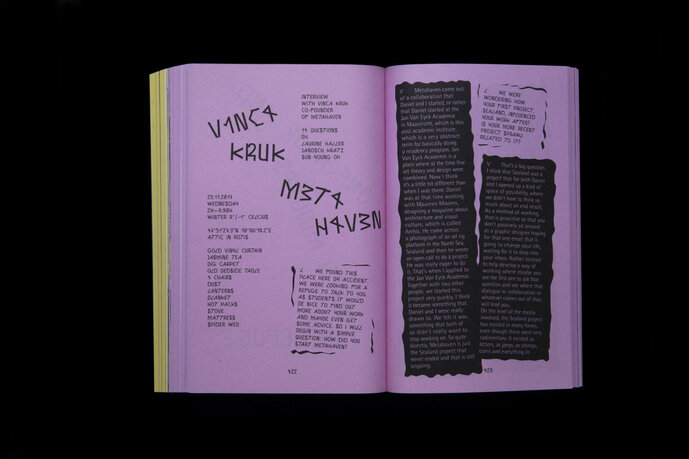 V1NC4
KRUK
M3T4
H4V3N
INTERVIEW
WITH VINCA KRUK
CO-FOUNDER
OF METAHAVEN
15 QUESTIONS
ON
LAURINE HALLER
JANOSCH KRATZ
SUN YOUNG OH
29.11.2017
WEDNESDAY
WINTER 8°/-1° CELCIUS
ATTIC IN ROTIS
GOLD VINYL CURTAIN
JASMINE TEA
BIG CARPET
OLD BEDSIDE TABLE
4 CHAIRS
DUST
LANTERNS
BLANKET
HOT PACKS
STOVE
MATTRESS
SPIDER WEB
L WE FOUND THIS
PLACE HERE ON ACCIDENT.
WE WERE LOOKING FOR A
REFUGE TO TALK TO YOU.
AS STUDENTS IT WOULD
BE NICE TO FIND OUT
MORE ABOUT YOUR WORK
AND MAYBE EVEN GET
SOME ADVICE, SO I WILL
BEGIN WITH A SIMPLE
QUESTION: HOW DID YOU
START METAHAVEN?
122
V Metahaven came out
of a collaboration that
Daniel and I started, or rather
that Daniel started at the
Jan Van Eyck Academie
in Maastricht, which is this
post academic institute,
which is a very abstract
term for basically doing
a residency program. Jan
Van Eyck Academie is a
place where at the time fine
art theory and design were
combined. Now I think
it's a little bit different than
when I was there. Daniel
was at that time working
with Maureen Mooren,
designing a magazine about
architecture and visual
culture, which is called
Archis. He came across
a photograph of an oil rig
platform in the North Sea,
Sealand and then he wrote
an open call to do a project.
He was really eager to do
it. That's when I applied to
the Jan Van Eyck Academie.
Together with two other
people, we started this
project very quickly I think
it became something that
Daniel and I were really
drawn to. We felt it was
something that both of
us didn't really want to
stop working on. So quite
directly, Metahaven is just
the Sealand project that
never ended and that is still
ongoing.
L WE WERE
WONDERING HOW
YOUR FIRST PROJECT,
SEALAND, INFLUENCED
YOUR WORK AFTER?
IS YOUR MORE RECENT
PROJECT SPRAWL
RELATED TO IT?
V That's a big question.
I think that Sealand was a
project that for both Daniel
and I opened up a kind of
space of possibility, where
we didn't have to think so
much about an end result.
As a method of working,
that is proactive so that you
don't passively sit around
as a graphic designer hoping
for that one email that is
going to change your life,
waiting for it to drop into
your inbox. Rather instead
to help develop a way of
working where maybe you
are the first one to ask that
question and see where that
dialogue or collaboration or
whatever comes out of that,
will lead you.
On the level of the media
involved, the Sealand project
has existed in many forms,
even though these were very
rudimentary. It existed as
letters, as jpegs, as stamps,
coins and everything in
123